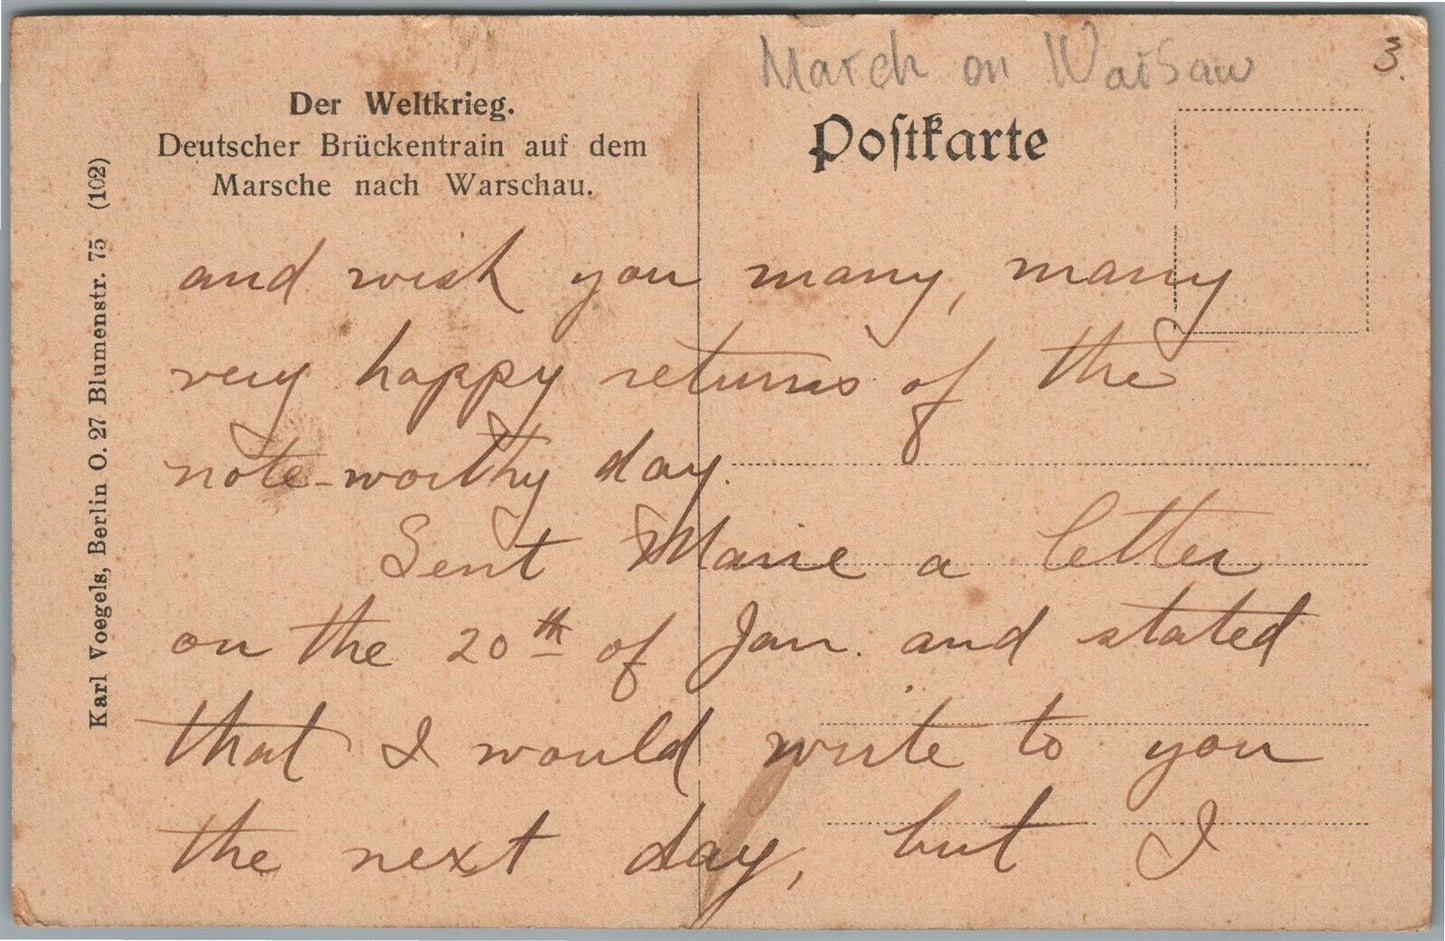 March on Warsaw
3.
Der Weltkrieg.
Deutscher Brückentrain auf dem
Marsche nach Warschau.
Postkarte
Karl Voegels, Berlin O. 27 Blumenstr. 75 (102)
and wish you many, many
very happy returns of the
note-worthy day.
Sent Marie a letter
on the 20th of Jan. and stated
that I would write to you
the next day, but I